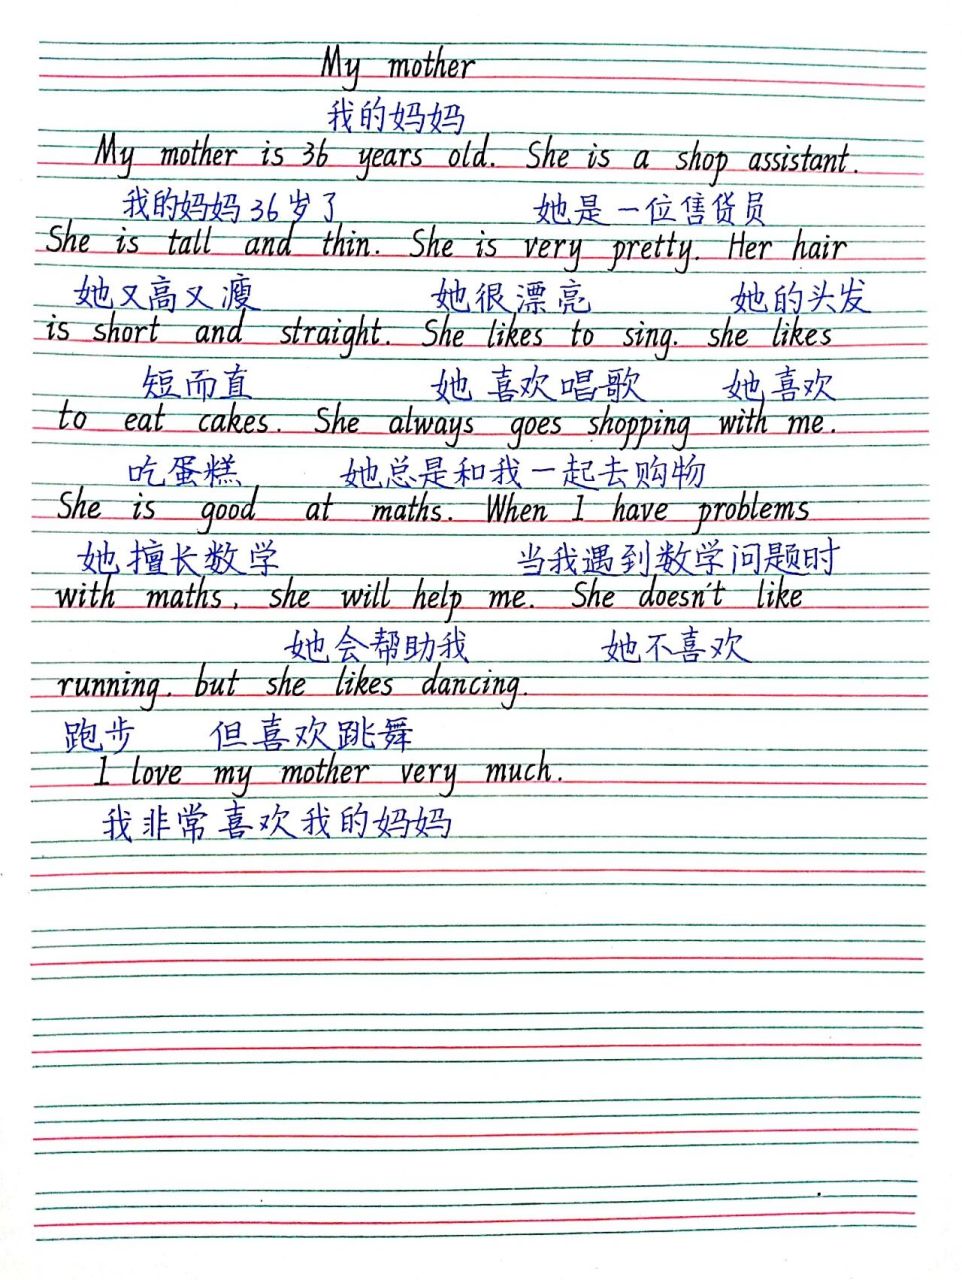 My mother
我的妈妈
My mother is 36 years old. She is a shop assistant.
我的妈妈36岁了 她是一位售货员
She is tall and thin. She is very pretty. Her hair
她又高又瘦 她很漂亮 她的头发
is short and straight. She likes to sing. she likes
短而直 她喜欢唱歌 她喜欢
to eat cakes. She always goes shopping with me.
吃蛋糕 她总是和我一起去购物
She is good at maths. When I have problems
她擅长数学 当我遇到数学问题时
with maths, she will help me. She doesn't like
她会帮助我 她不喜欢
running. but she likes dancing.
跑步 但喜欢跳舞
I love my mother very much.
我非常喜欢我的妈妈